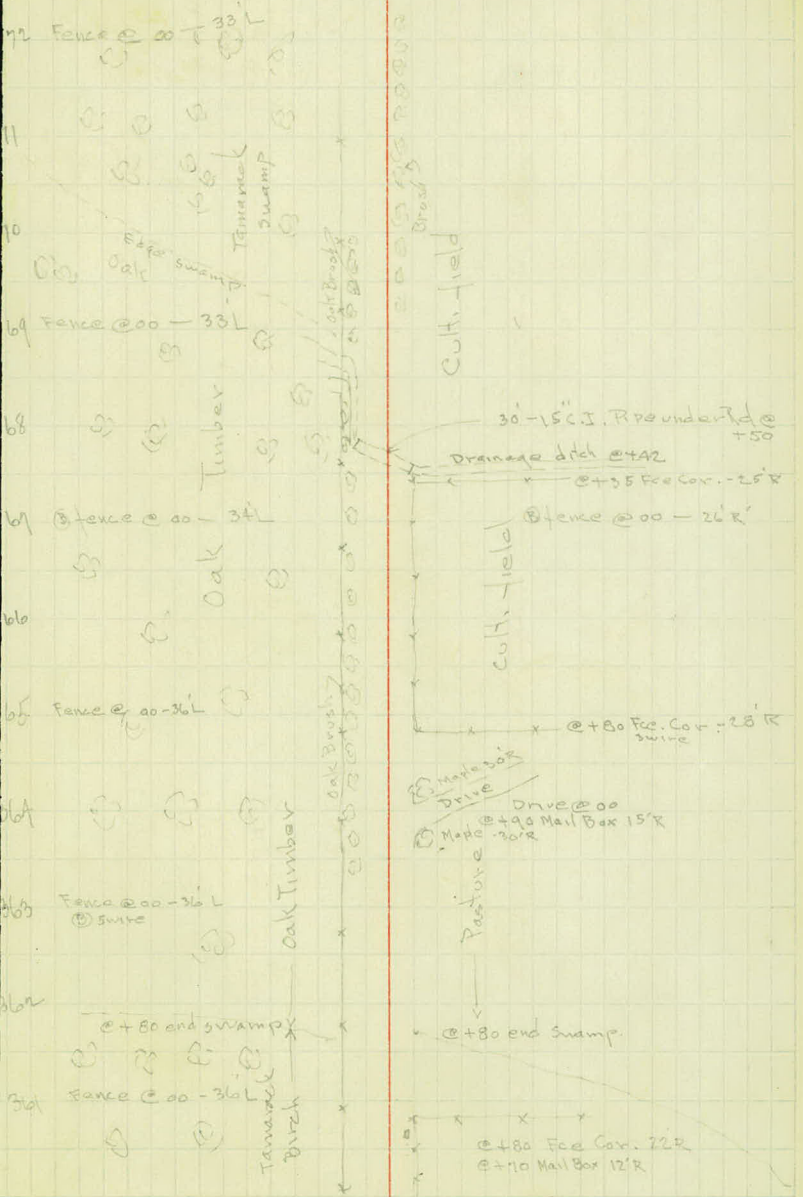 72 Fence @ 00 - 33' L
71
Tamarack
Swamp
Brush
70
Edge Swamp
Oak
Oak Brush
Cult. Field
69 Fence @ 00 - 33' L
68
Timber
30'-15" C.I. Pipe under Rd @
+50
Drainage ditch @+42
@+35 Fce Cor. - 25' R
67 Fence @ 00 - 34' L
Fence @ 00 - 26' R
Oak
Cult. Field
66
65 Fence @ 00 - 36' L
@+80 Fce. Cor - 28' R
5 wire
Oak Brush
Maple 30' R
Drive
364
Drive @ 00
@+90 Mail Box 15' R
Maple - 20' R
Oak Timber
Pasture
363 Fence @ 00 - 36' L
5 wire
362
@ +80 end swamp
@ +80 end Swamp.
361 Fence @ 00 - 36' L
Tamarack
Birch
@ +80 Fce Cor. 22 R
@ +70 Mail Box 12' R